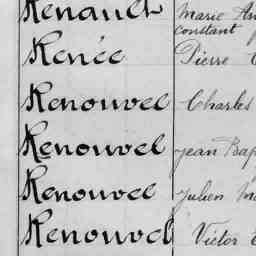 Renault Marie
constant
Renée Pierre
Renouvel Charles
Renouvel Jean
Renouvel Julien
Renouvel Victor